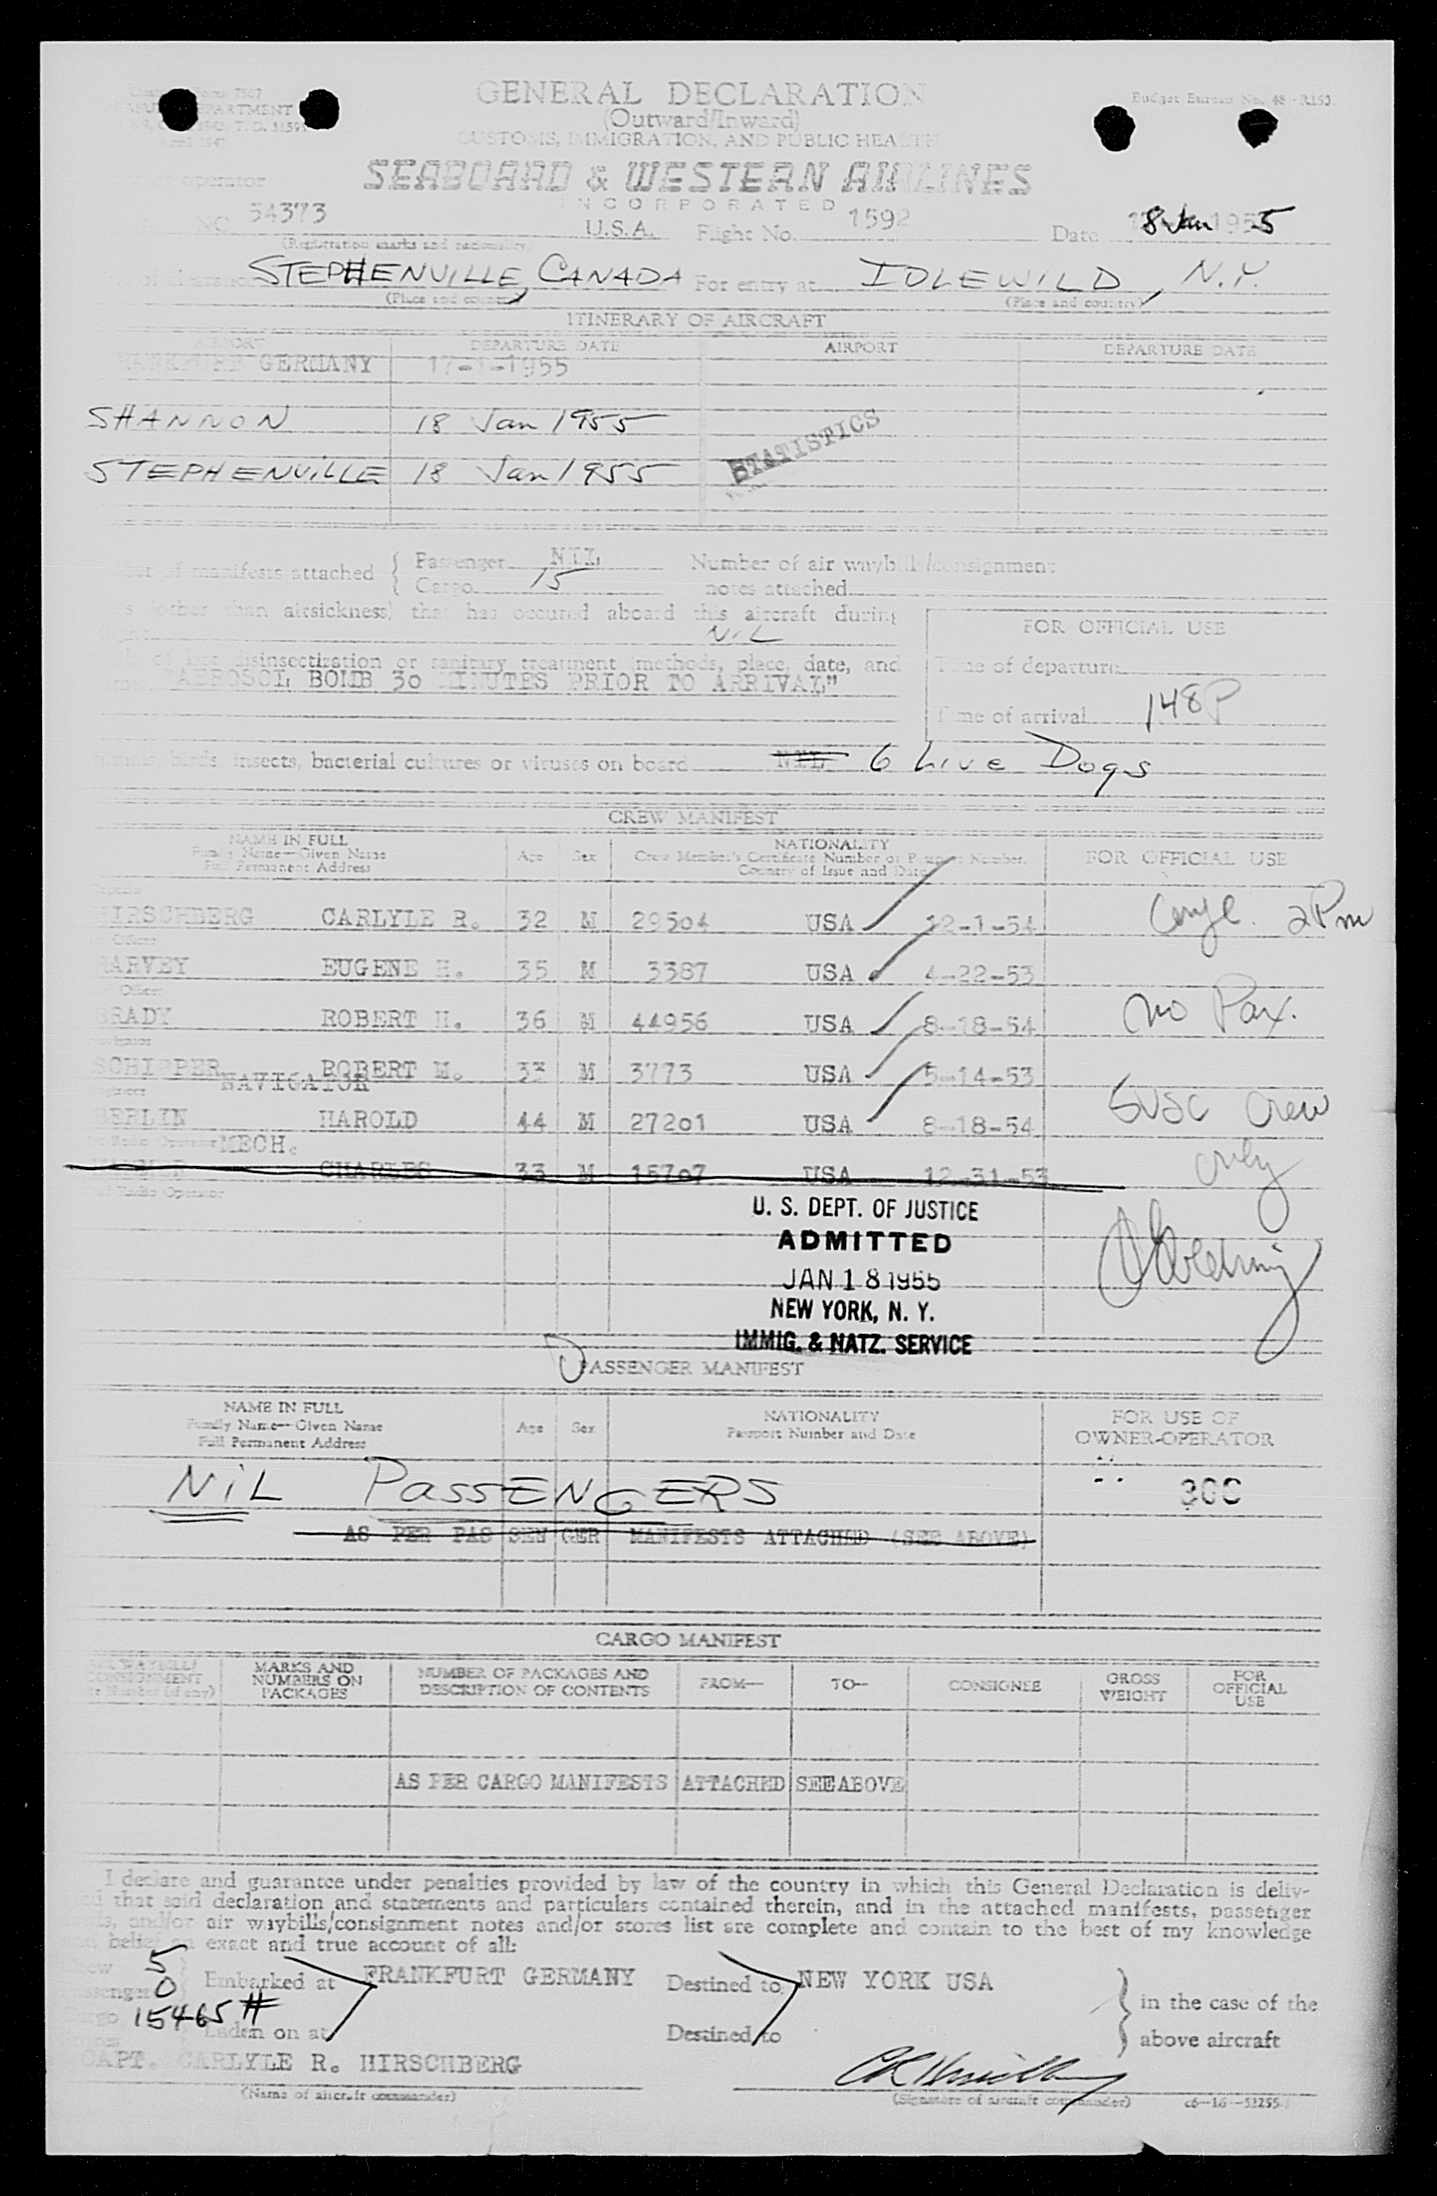 GENERAL DECLARATION
(Outward/Inward)
CUSTOMS, IMMIGRATION, AND PUBLIC HEALTH
Budget Bureau No. 48-R150
SEABOARD & WESTERN AIRLINES
INCORPORATED
operator
NC 54373 U.S.A. Flight No. 1592 Date 18 Jan 1955
(Registration marks and nationality)
STEPHENVILLE, CANADA For entry at IDLEWILD, N.Y.
(Place and country) (Place and country)
ITINERARY OF AIRCRAFT
AIRPORT DEPARTURE DATE AIRPORT DEPARTURE DATE
FRANKFURT GERMANY 17-1-1955
SHANNON 18 Jan 1955
STEPHENVILLE 18 Jan 1955
STATISTICS
of manifests attached { Passenger NIL Number of air waybills/consignment
Cargo 15 notes attached
(other than airsickness) that has occured aboard this aircraft during
NIL
FOR OFFICIAL USE
disinsectization or sanitary treatment (methods, place, date, and
"AEROSOL BOMB 30 MINUTES PRIOR TO ARRIVAL"
Time of departure
Time of arrival 148P
birds, insects, bacterial cultures or viruses on board NIL 6 Live Dogs
CREW MANIFEST
NAME IN FULL
Family Name—Given Name
Full Permanent Address
Age Sex
NATIONALITY
Crew Member's Certificate Number or Passport Number.
Country of Issue and Date
FOR OFFICIAL USE
HIRSCHBERG CARLYLE R. 32 M 29504 USA 12-1-54
2 Pm
HARVEY EUGENE H. 35 M 3387 USA 4-22-53
BRADY ROBERT H. 36 M 44956 USA 8-18-54
No Pax.
SCHIPPER ROBERT M. 33 M 3773 USA 5-14-53
NAVIGATOR
BERLIN HAROLD 44 M 27201 USA 8-18-54
Crew
only
MECH.
CHARLES 33 M 15707 USA 12-31-53
Radio Operator
U. S. DEPT. OF JUSTICE
ADMITTED
JAN 18 1955
NEW YORK, N. Y.
IMMIG. & NATZ. SERVICE
PASSENGER MANIFEST
NAME IN FULL
Family Name—Given Name
Full Permanent Address
Age Sex
NATIONALITY
Passport Number and Date
FOR USE OF
OWNER-OPERATOR
NIL PASSENGERS
AS PER PAS SEN GER MANIFESTS ATTACHED (SEE ABOVE)
CARGO MANIFEST
MARKS AND
NUMBERS ON
PACKAGES
NUMBER OF PACKAGES AND
DESCRIPTION OF CONTENTS
FROM— TO— CONSIGNEE
GROSS
WEIGHT
FOR
OFFICIAL
USE
AS PER CARGO MANIFESTS ATTACHED SEE ABOVE
I declare and guarantee under penalties provided by law of the country in which this General Declaration is deliv-
that said declaration and statements and particulars contained therein, and in the attached manifests, passenger
and/or air waybills/consignment notes and/or stores list are complete and contain to the best of my knowledge
belief an exact and true account of all:
5
0 Embarked at FRANKFURT GERMANY Destined to NEW YORK USA
in the case of the
15465# Laden on at Destined to
above aircraft
CAPT. CARLYLE R. HIRSCHBERG
(Name of aircraft commander) (Signature of aircraft commander)